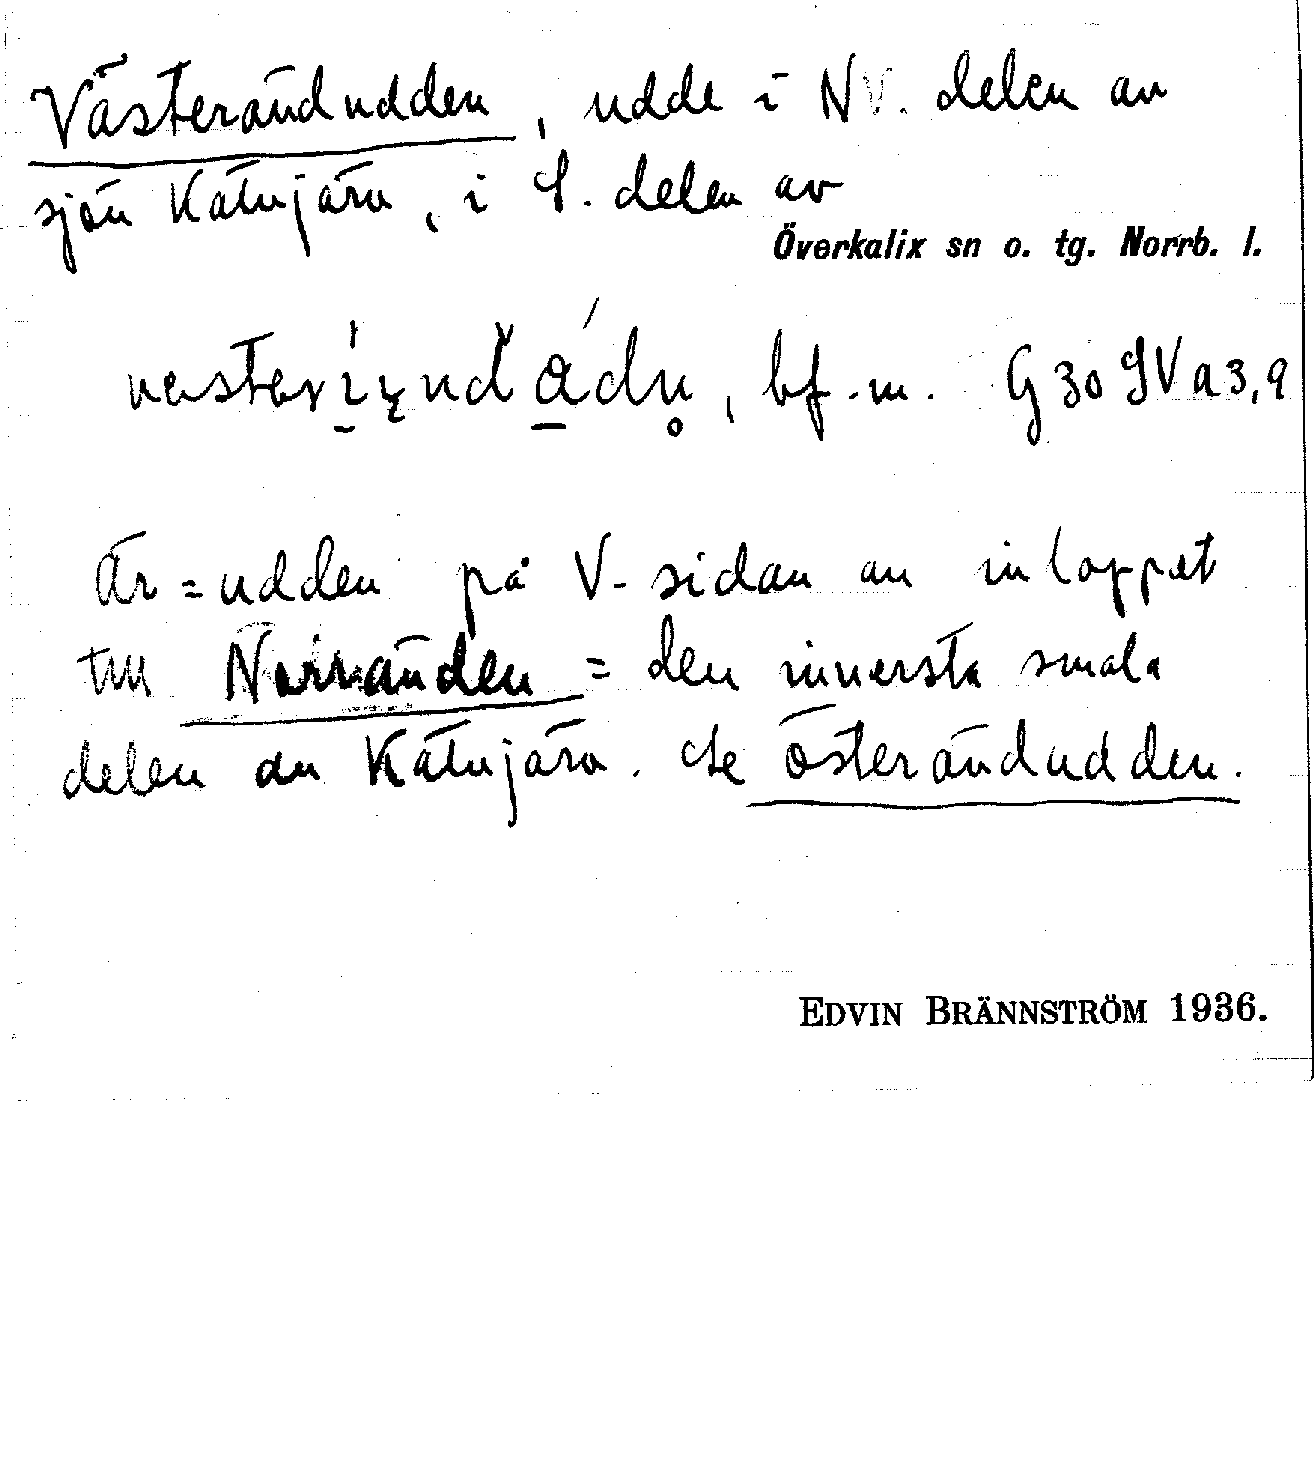 Västerändudden, udde i NV. delen av
sjön Kätujärv, i S. delen av
Överkalix sn o. tg. Norrb. l.
bf. m. G 30 IV a 3, 9
Är = udden på V-sidan av inloppet
till Norränden = den innersta smala
delen av Kätujärv. Se Österändudden.
EDVIN BRÄNNSTRÖM 1936.